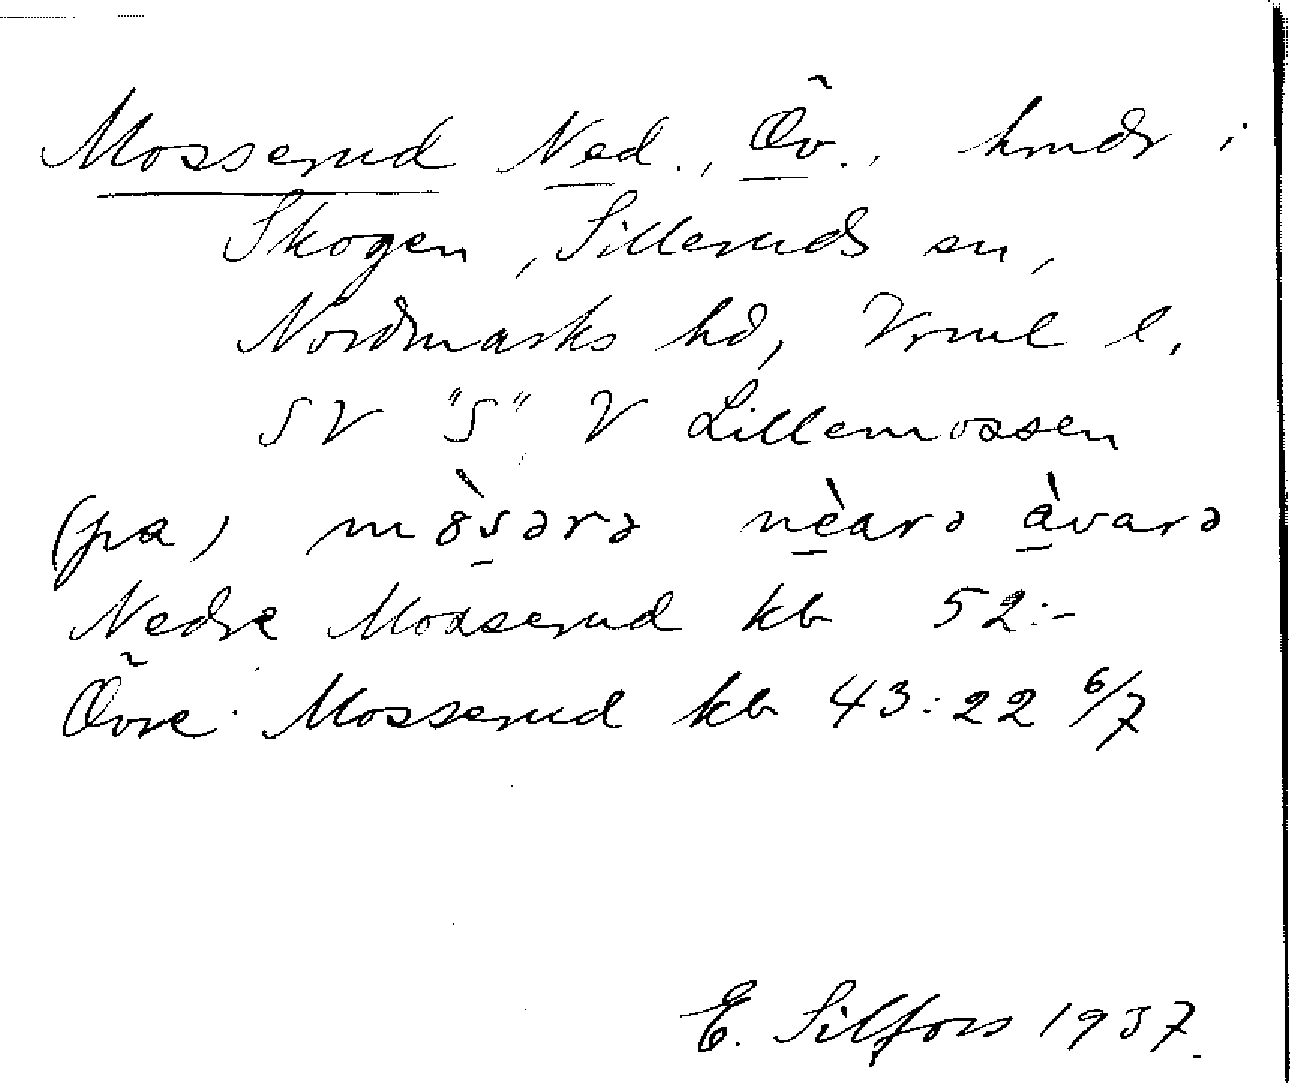 Mosserud Ned., Öv., hmdr i
Skogen, Silleruds sn,
Nordmarks hd, Vrml l.
SV "S", V Lillemossen
(pa) mòsərə nèarə àvarə
Nedre Mosserud kb 52:-
Övre Mosserud kb 43:22 6/7
E. Silfors 1937.